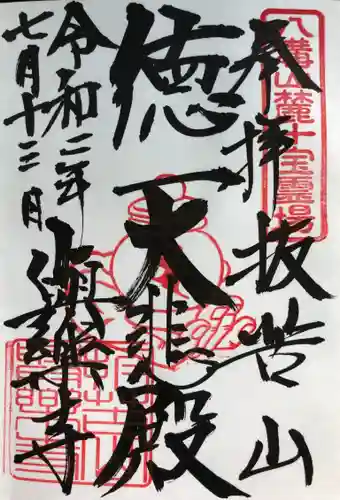 八溝山麓十宝霊場
奉拝 抜苦山
徳一大悲殿
令和二年
七月十二日
與樂寺